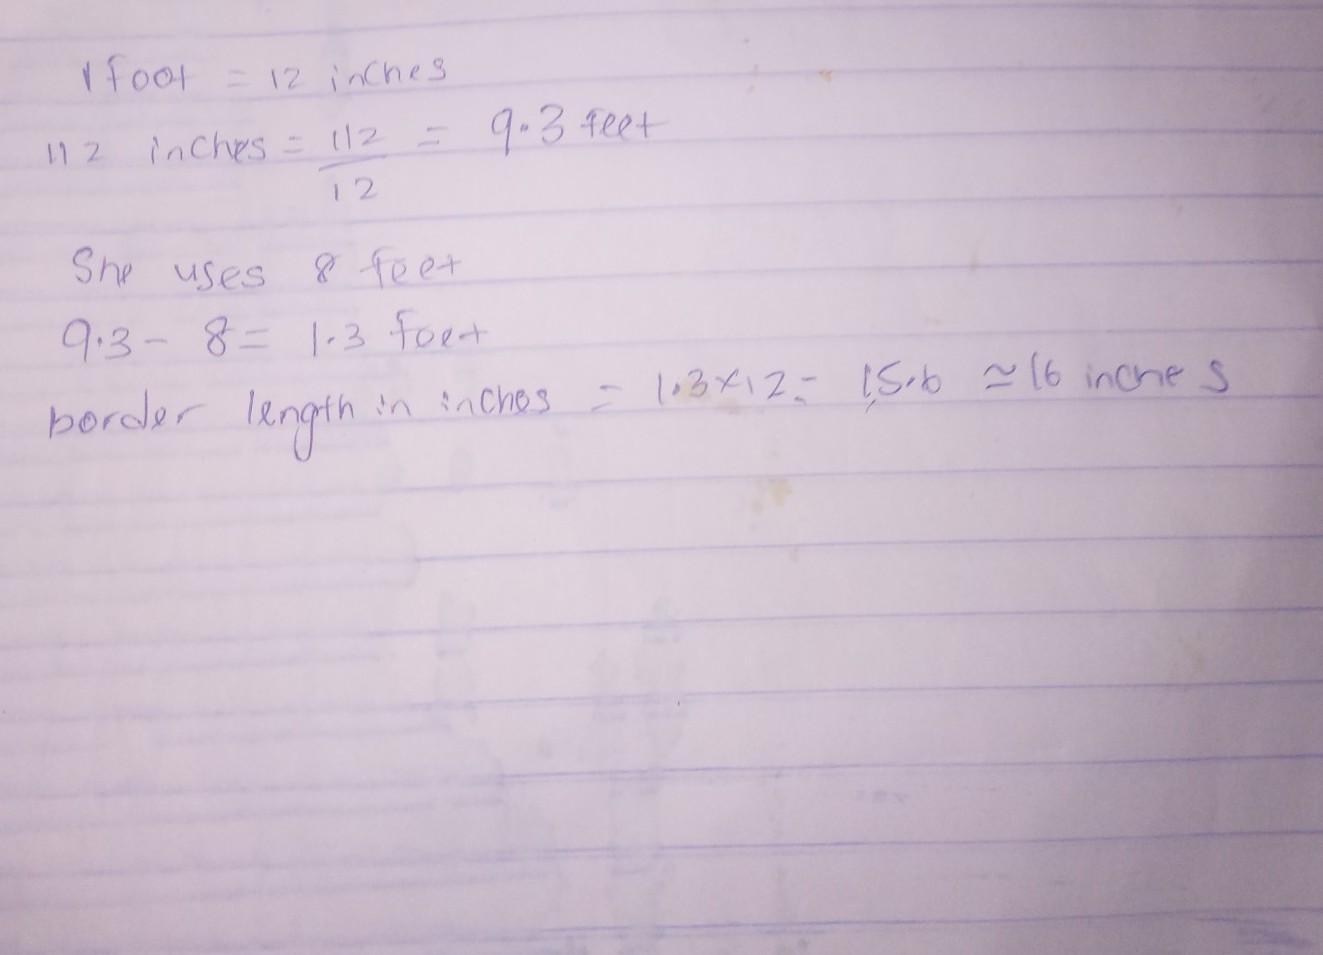 1 foot = 12 inches
112 inches = 112/12 = 9.3 feet
She uses 8 feet
9.3 - 8 = 1.3 foet
border length in inches = 1.3 x 12 = 15.6 ≃ 16 inches